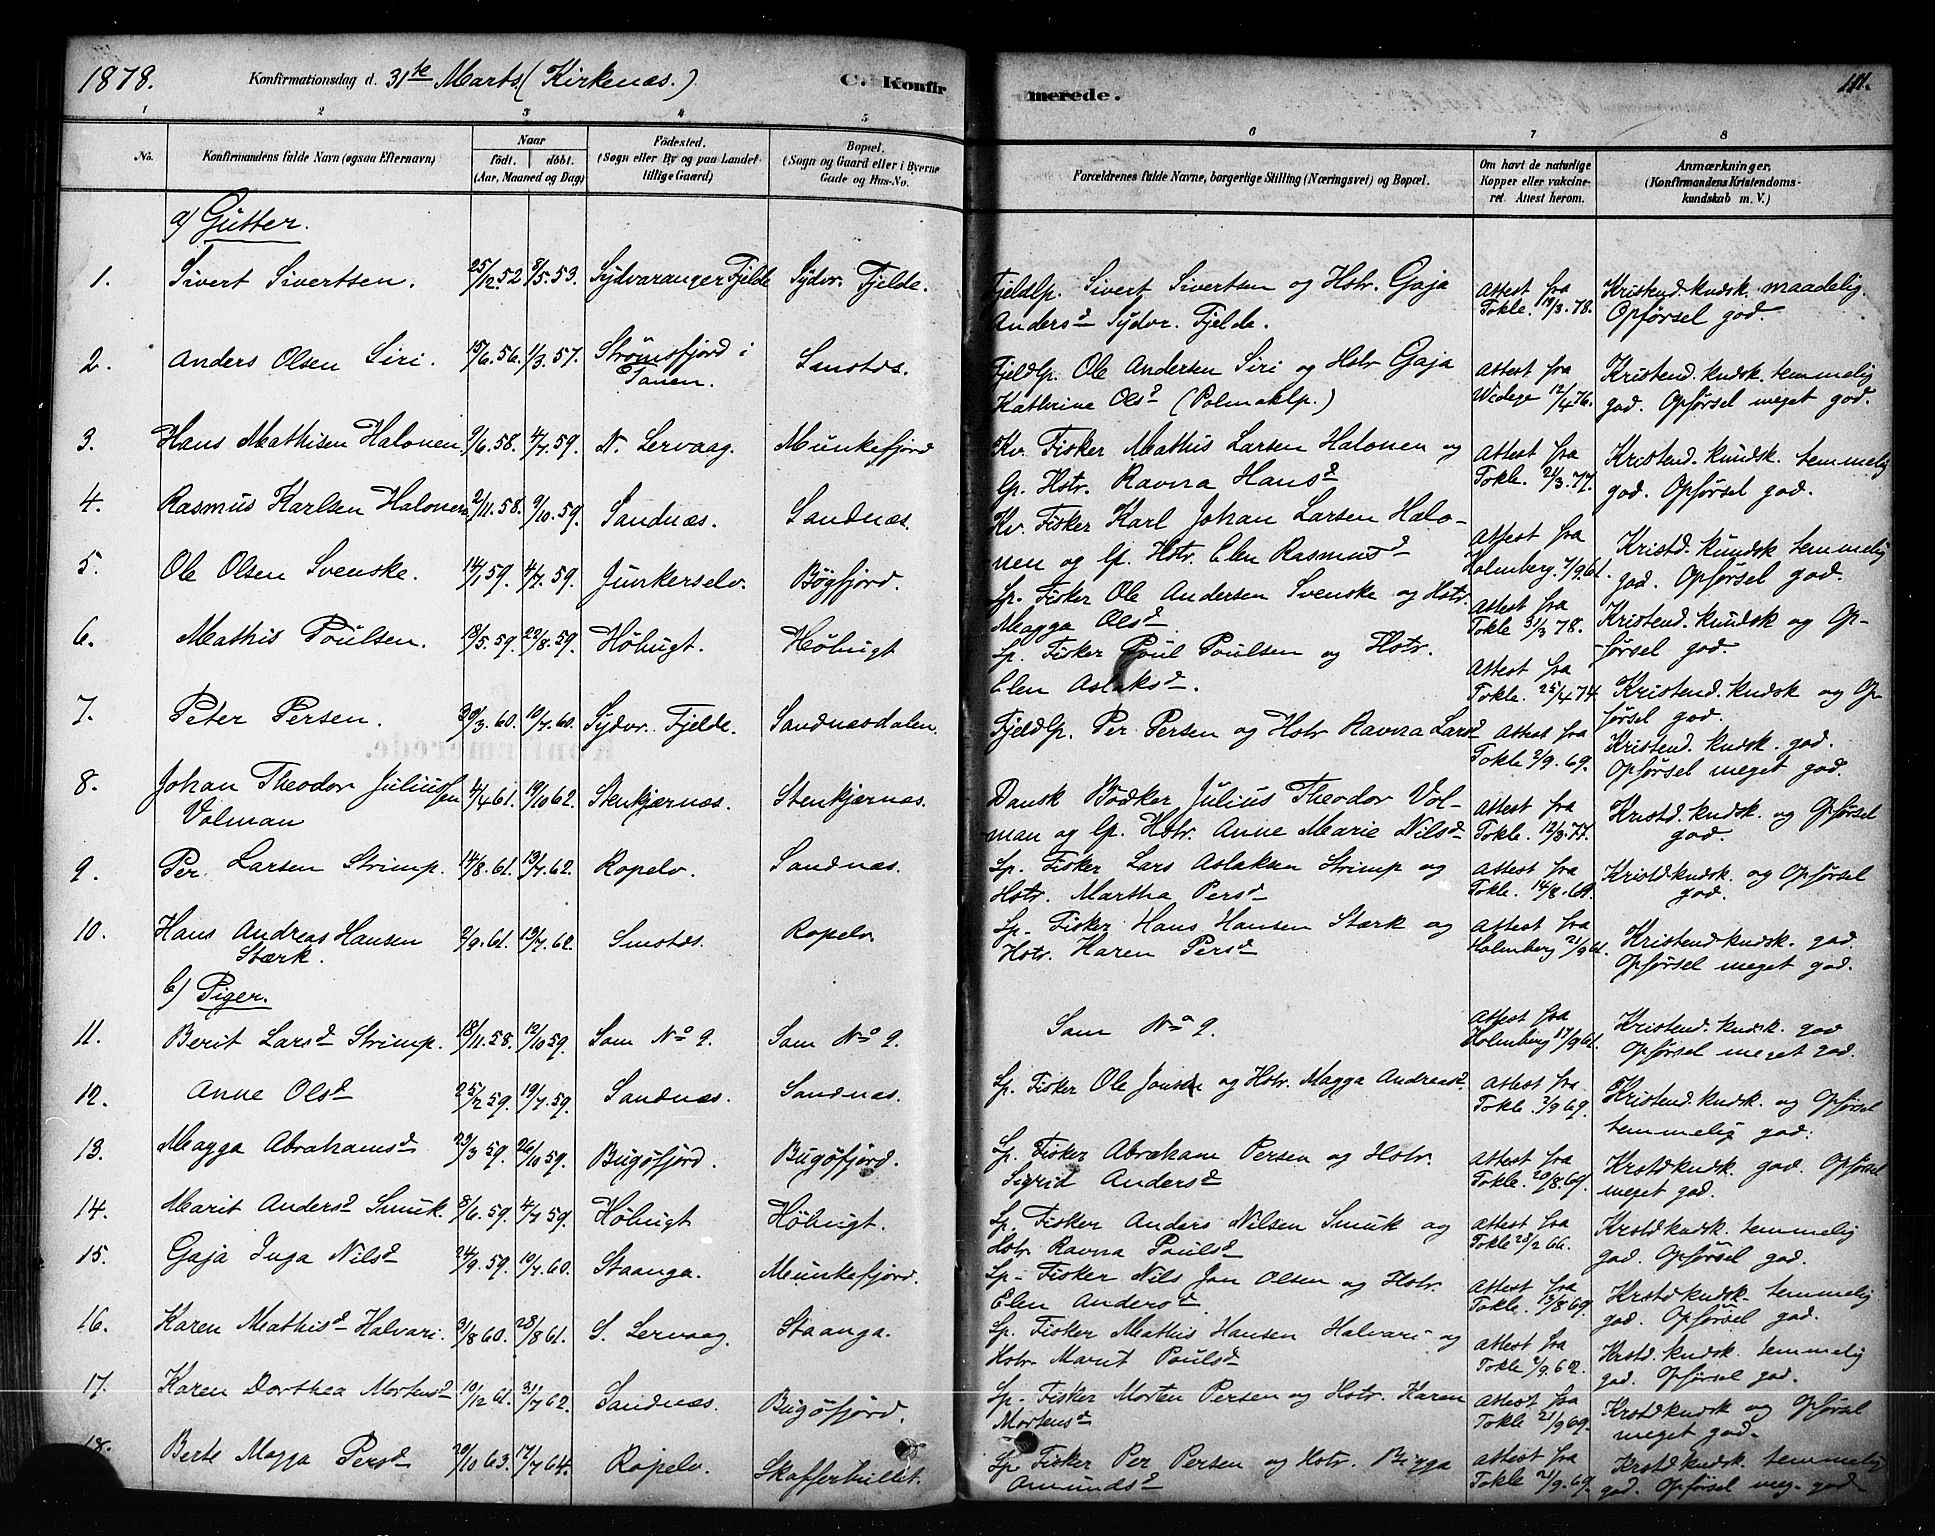 1878. Konfirmationsdag d. 31te Marts (Kirkenæs.) C. Konfirmerede. 111.
1 2 3 4 5 6 7 8
No. Konfirmandens fulde Navn (ogsaa Efternavn) Naar födt. döbt. (Aar, Maaned og Dag) Födested. (Sogn eller By og paa Landet tillige Gaard) Bopæl. (Sogn og Gaard eller i Byerne Gade og Hus-No. Forældrenes fulde Navne, borgerlige Stilling (Næringsvei) og Bopæl. Om havt de naturlige Kopper eller vakcineret. Attest herom. Anmærkninger, (Konfirmandens Kristendomskundskab m. V.)
a) Gutter.
1. Sivert Sivertsen. 25/12 52 8/5 53. Sydvaranger Fjelde Sydv. Fjelde. Fjeldlp. Sivert Sivertsen og Hstr. Gaja Attest fra Kristend. kndsk. maadelig.
Andersd Sydvr. Fjelde. Tokle. 19/3 78. Opførsel god.
2. Anders Olsen Siri. 15/6 56. 1/3 57. Strømsfjord i Smstds. Fjeldlp. Ole Andersen Siri og Hstr Gaja Attest fra Kristend. kndsk. temmelig
Tanen. Kathrine Olsd (Polmaklp.) Wedege 12/4 76. god. Opførsel meget god.
3. Hans Mathisen Halonen 9/6 58. 4/7 59. N. Lervaag. Munkefjord Kv. Fisker Mathis Larsen Halonen og Attest fra Kristend. kundsk. temmelig
lp. Hstr. Ravna Hansd Tokle. 24/3 77. god. Opførsel god.
4. Rasmus Karlsen Halonen 2/11 58. 9/10 59. Sandnæs. Sandnæs. Kv. Fisker Karl Johan Larsen Halo- Attest fra Kristd. kundsk temmelig
nen og lp. Hstr. Elen Rasmusd Holmberg 7/9 61. god. Opførsel god.
5. Ole Olsen Svenske. 14/1 59. 4/7 59. Junkerselv. Bøgfjord. Lp. Fisker Ole Andersen Svenske og Hstr. Attest fra Kristend. kundsk og Op-
Magga Olsd Tokle 31/3 78. førsel god.
6. Mathis Poulsen. 18/5 59. 22/8 59. Höbugt. Höbugt Lp. Fisker Poul Poulsen og Hstr. Attest fra Kristend. kndsk og Op
Elen Aslaksd. Tokle. 25/4 74 førsel god.
7. Peter Persen. 30/3 60. 10/7 60. Sydvr. Fjelde. Sandnæsdalen. Fjeldlp. Per Persen og Hstr Ravna Larsd Attest fra Kristend. kndsk. god.
Tokle 2/9 69. Opførsel meget god.
8. Johan Theodor Juliussen 4/4 61. 19/10 62. Stenkjærnæs. Stenkjærnæs. Dansk Bödker Julius Theodor Vol- Attest fra Kristd. kndsk. og Opførsel
Volman man og lp. Hstr. Anne Marie Nilsd Tokle. 12/3 77. god.
9. Per Larsen Strimp. 14/8 61. 13/7 62. Ropelv. Sandnæs. Lp. Fisker Lars Aslaksen Strimp og Attest fra Kristdkndsk. og Opførsel
Hstr. Martha Persd Tokle. 14/8 69. god.
10. Hans Andreas Hansen 2/9 61. 13/7 62. Smstds. Ropelv. Lp. Fisker Hans Hansen Stærk og Attest fra Kristendkndsk. god.
Stærk. Hstr. Karen Persd Holmberg 21/9 61. Opførsel meget god.
b) Piger.
11. Berit Larsd Strimp. 18/11 58. 12/10 59. Som No 9. Som No 9. Som No 9. Attest fra Kristend. kndsk. god
Holmberg 17/9 61. Opførsel meget god.
12. Anne Olsd 25/2 59. 19/7 59. Sandnæs. Sandnæs. Lp. Fisker Ole Jonsen og Hstr. Magga Andreasd. Attest fra Kristend. kndsk. og Opførsel
Tokle 2/9 69. temmelig god.
13. Magga Abrahamsd 23/3 59. 26/10 59. Bugöfjord. Bugöfjord. Lp. Fisker Abraham Persen og Hstr. Attest fra Krstdkndsk. god. Opførsel
Sigrid Andersd Tokle. 20/8 69. meget god.
14. Marit Andersd Smuk. 8/6 59. 4/7 59. Höbugt Höbugt. Lp. Fisker Anders Nilsen Smuk og Attest fra Krstdkndsk. temmelig
Hstr Ravna Poulsd Tokle 28/2 66. god. Opførsel god.
15. Gaja Inga Nilsd 24/9 59. 10/7 60. Staanga. Munkefjord. Lp. Fisker Nils Jon Olsen og Hstr. Attest fra Krstdkndsk. temmelig
Elen Andersd. Tokle. 13/8 69. god. Opførsel god.
16. Karen Mathisd Halvari. 31/8 60. 28/8 61. S. Lervaag. Staanga. Lp. Fisker Mathis Hansen Halvari og Attest fra Krstd. kndsk. temmelig
Hstr. Marit Poulsd Tokle 2/9 62. god. Opførsel god.
17. Karen Dorthea Mortensd 10/12 61. 31/7 62. Sandnæs. Bugöfjord. Lp. Fisker Morten Persen og Hstr. Karen Attest fra Krstdkndsk og Opførsel
Mortensd Tokle 21/9 69. meget god.
18. Berte Magga Persd 20/10 63. 17/7 64. Ropelv. Skafferhullet. Lp Fisker Per Persen og Hstr. Bigga Attest fra Krstdkndsk. temmelig
Amundsd Tokle 21/9 69. god. Opførsel meg. god